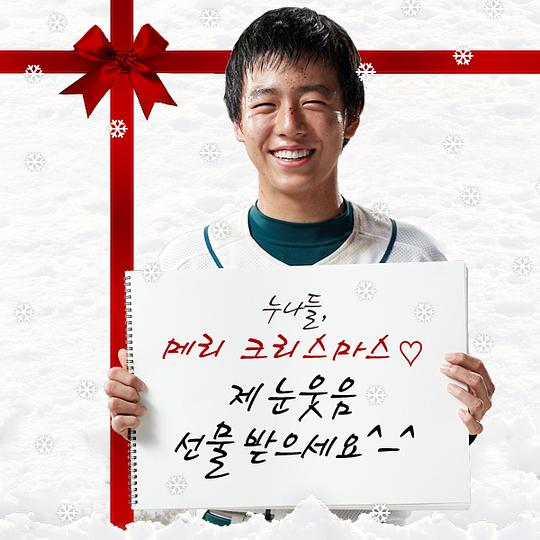 누나들,
메리 크리스마스♡
제 눈웃음
선물 받으세요^-^